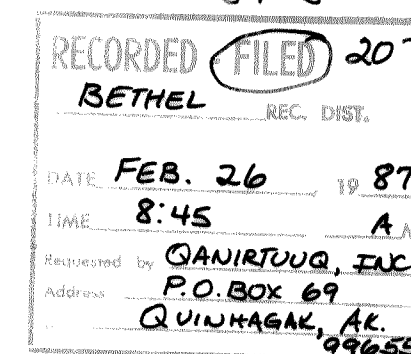 RECORDED - FILED 20
BETHEL REC. DIST.
DATE FEB. 26 19 87
TIME 8:45 A
Requested by QANIRTUUQ, INC
Address P.O. BOX 69
QUINHAGAK, AK.
99655